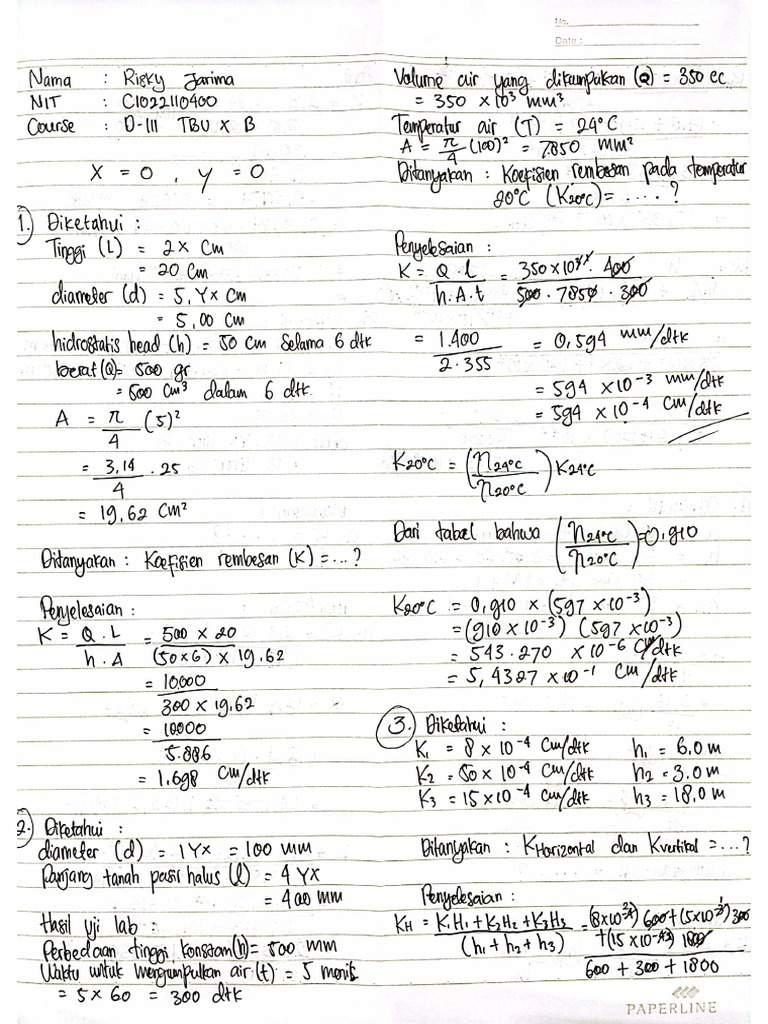 No.
Date :
Nama : Risky Jarima
NIT : C1022110400
Course : D-III TBU X B
X = 0 , Y = 0
1. Diketahui :
Tinggi (L) = 2X Cm
= 20 Cm
diameter (d) = 5,YX Cm
= 5,00 Cm
hidrostatis head (h) = 50 Cm Selama 6 dtk
berat (Q) = 500 gr
= 500 Cm³ dalam 6 dtk.
A = π/4 (5)²
= 3,14/4 . 25
= 19,62 Cm²
Ditanyakan : Koefisien rembesan (K) = ...?
Penyelesaian :
K = Q . L / h . A = 500 x 20 / (50x6) x 19,62
= 10.000 / 300 x 19,62
= 10000 / 5.886
= 1,698 Cm/dtk
2. Diketahui :
diameter (d) = 1YX = 100 mm
Panjang tanah pasir halus (l) = 4YX
= 400 mm
Hasil uji lab :
Perbedaan tinggi konstam (h) = 500 mm
Waktu untuk mengumpulkan air (t) = 5 menit
= 5 x 60 = 300 dtk
Volume air yang dikumpulkan (Q) = 350 cc
= 350 x10³ mm³
Temperatur air (T) = 24°C
A = π/4 (100)² = 7.850 mm²
Ditanyakan : Koefisien rembesan pada temperatur
20°C (K20°C) = .... ?
Penyelesaian :
K = Q . l / h.A.t = 350 x 10³ . 400 / 500 . 7850 . 300
= 1.400 / 2.355 = 0,594 mm/dtk
= 594 x10⁻³ mm/dtk
= 594 x 10⁻⁴ Cm/dtk
K20°C = (η24°C / η20°C) K24°C
Dari tabel bahwa (η24°C / η20°C) = 0,910
K20°C = 0,910 x (597 x 10⁻³)
= (910 x 10⁻³) (597 x10⁻³)
= 543.270 x 10⁻⁶ Cm/dtk
= 5,4327 x10⁻¹ Cm/dtk
3. Diketahui :
K₁ = 8 x 10⁻⁴ Cm/dtk h₁ = 6.0 m
K₂ = 50 x 10⁻⁴ Cm/dtk h₂ = 3.0 m
K₃ = 15 x10⁻⁴ Cm/dtk h₃ = 18.0 m
Ditanyakan : KHorizontal dan Kvertikal = ...?
Penyelesaian :
KH = K₁H₁ + K₂H₂ + K₃H₃ / (h₁ + h₂ + h₃) = (8x10) 600 + (5x10) 300 + (15 x10) 1800 / 600 + 300 + 1800
PAPERLINE